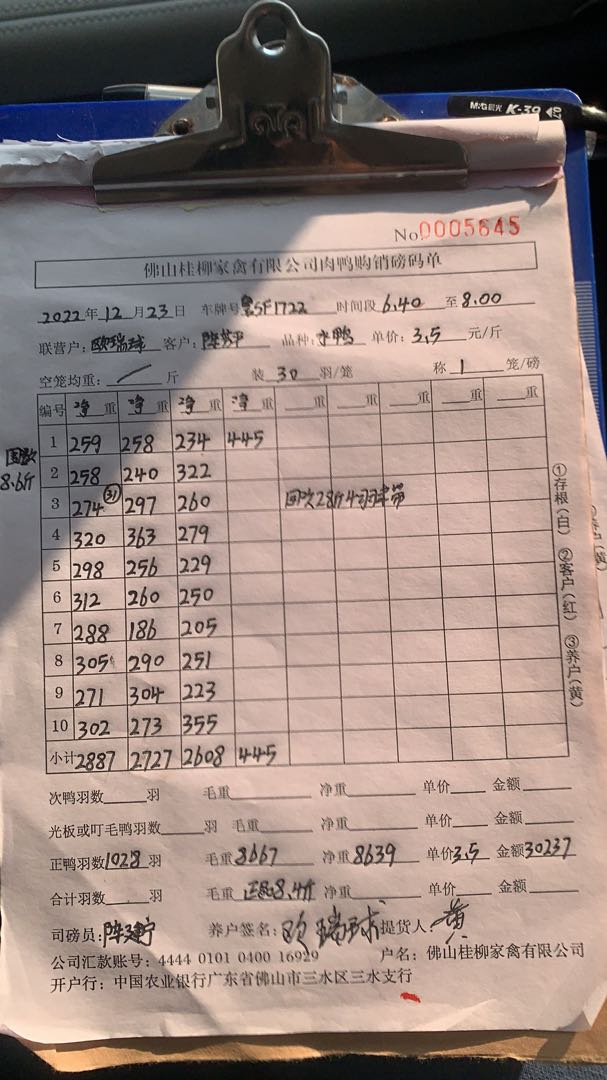 M&G晨光 K-39
No 0005645
佛山桂柳家禽有限公司肉鸭购销磅码单
2022年12月23日 车牌号粤SF1722 时间段6.40至8.00
联营户:欧瑞球 客户:陈 品种:水鸭 单价:3.5元/斤
空笼均重: / 斤 装30羽/笼 称1笼/磅
编号 净重 净重 净重 净重 重 重 重 重 重
1 259 258 234 445
2 258 240 322
8.6斤
3 274 31 297 260 回次28斤4羽
4 320 363 279
5 298 256 229
6 312 260 250
7 288 186 205
8 305 290 251
9 271 304 223
10 302 273 355
小计 2887 2727 2608 445
①存根(白) ②客户(红) ③养户(黄)
次鸭羽数 羽 毛重 净重 单价 金额
光板或叮毛鸭羽数 羽 毛重 净重 单价 金额
正鸭羽数1028羽 毛重8667 净重8639 单价3.5 金额30237
合计羽数 羽 毛重 8.4斤 净重 单价 金额
司磅员: 陈 养户签名:欧瑞球 提货人:黄
公司汇款账号:4444 0101 0400 16929 户名:佛山桂柳家禽有限公司
开户行:中国农业银行广东省佛山市三水区三水支行